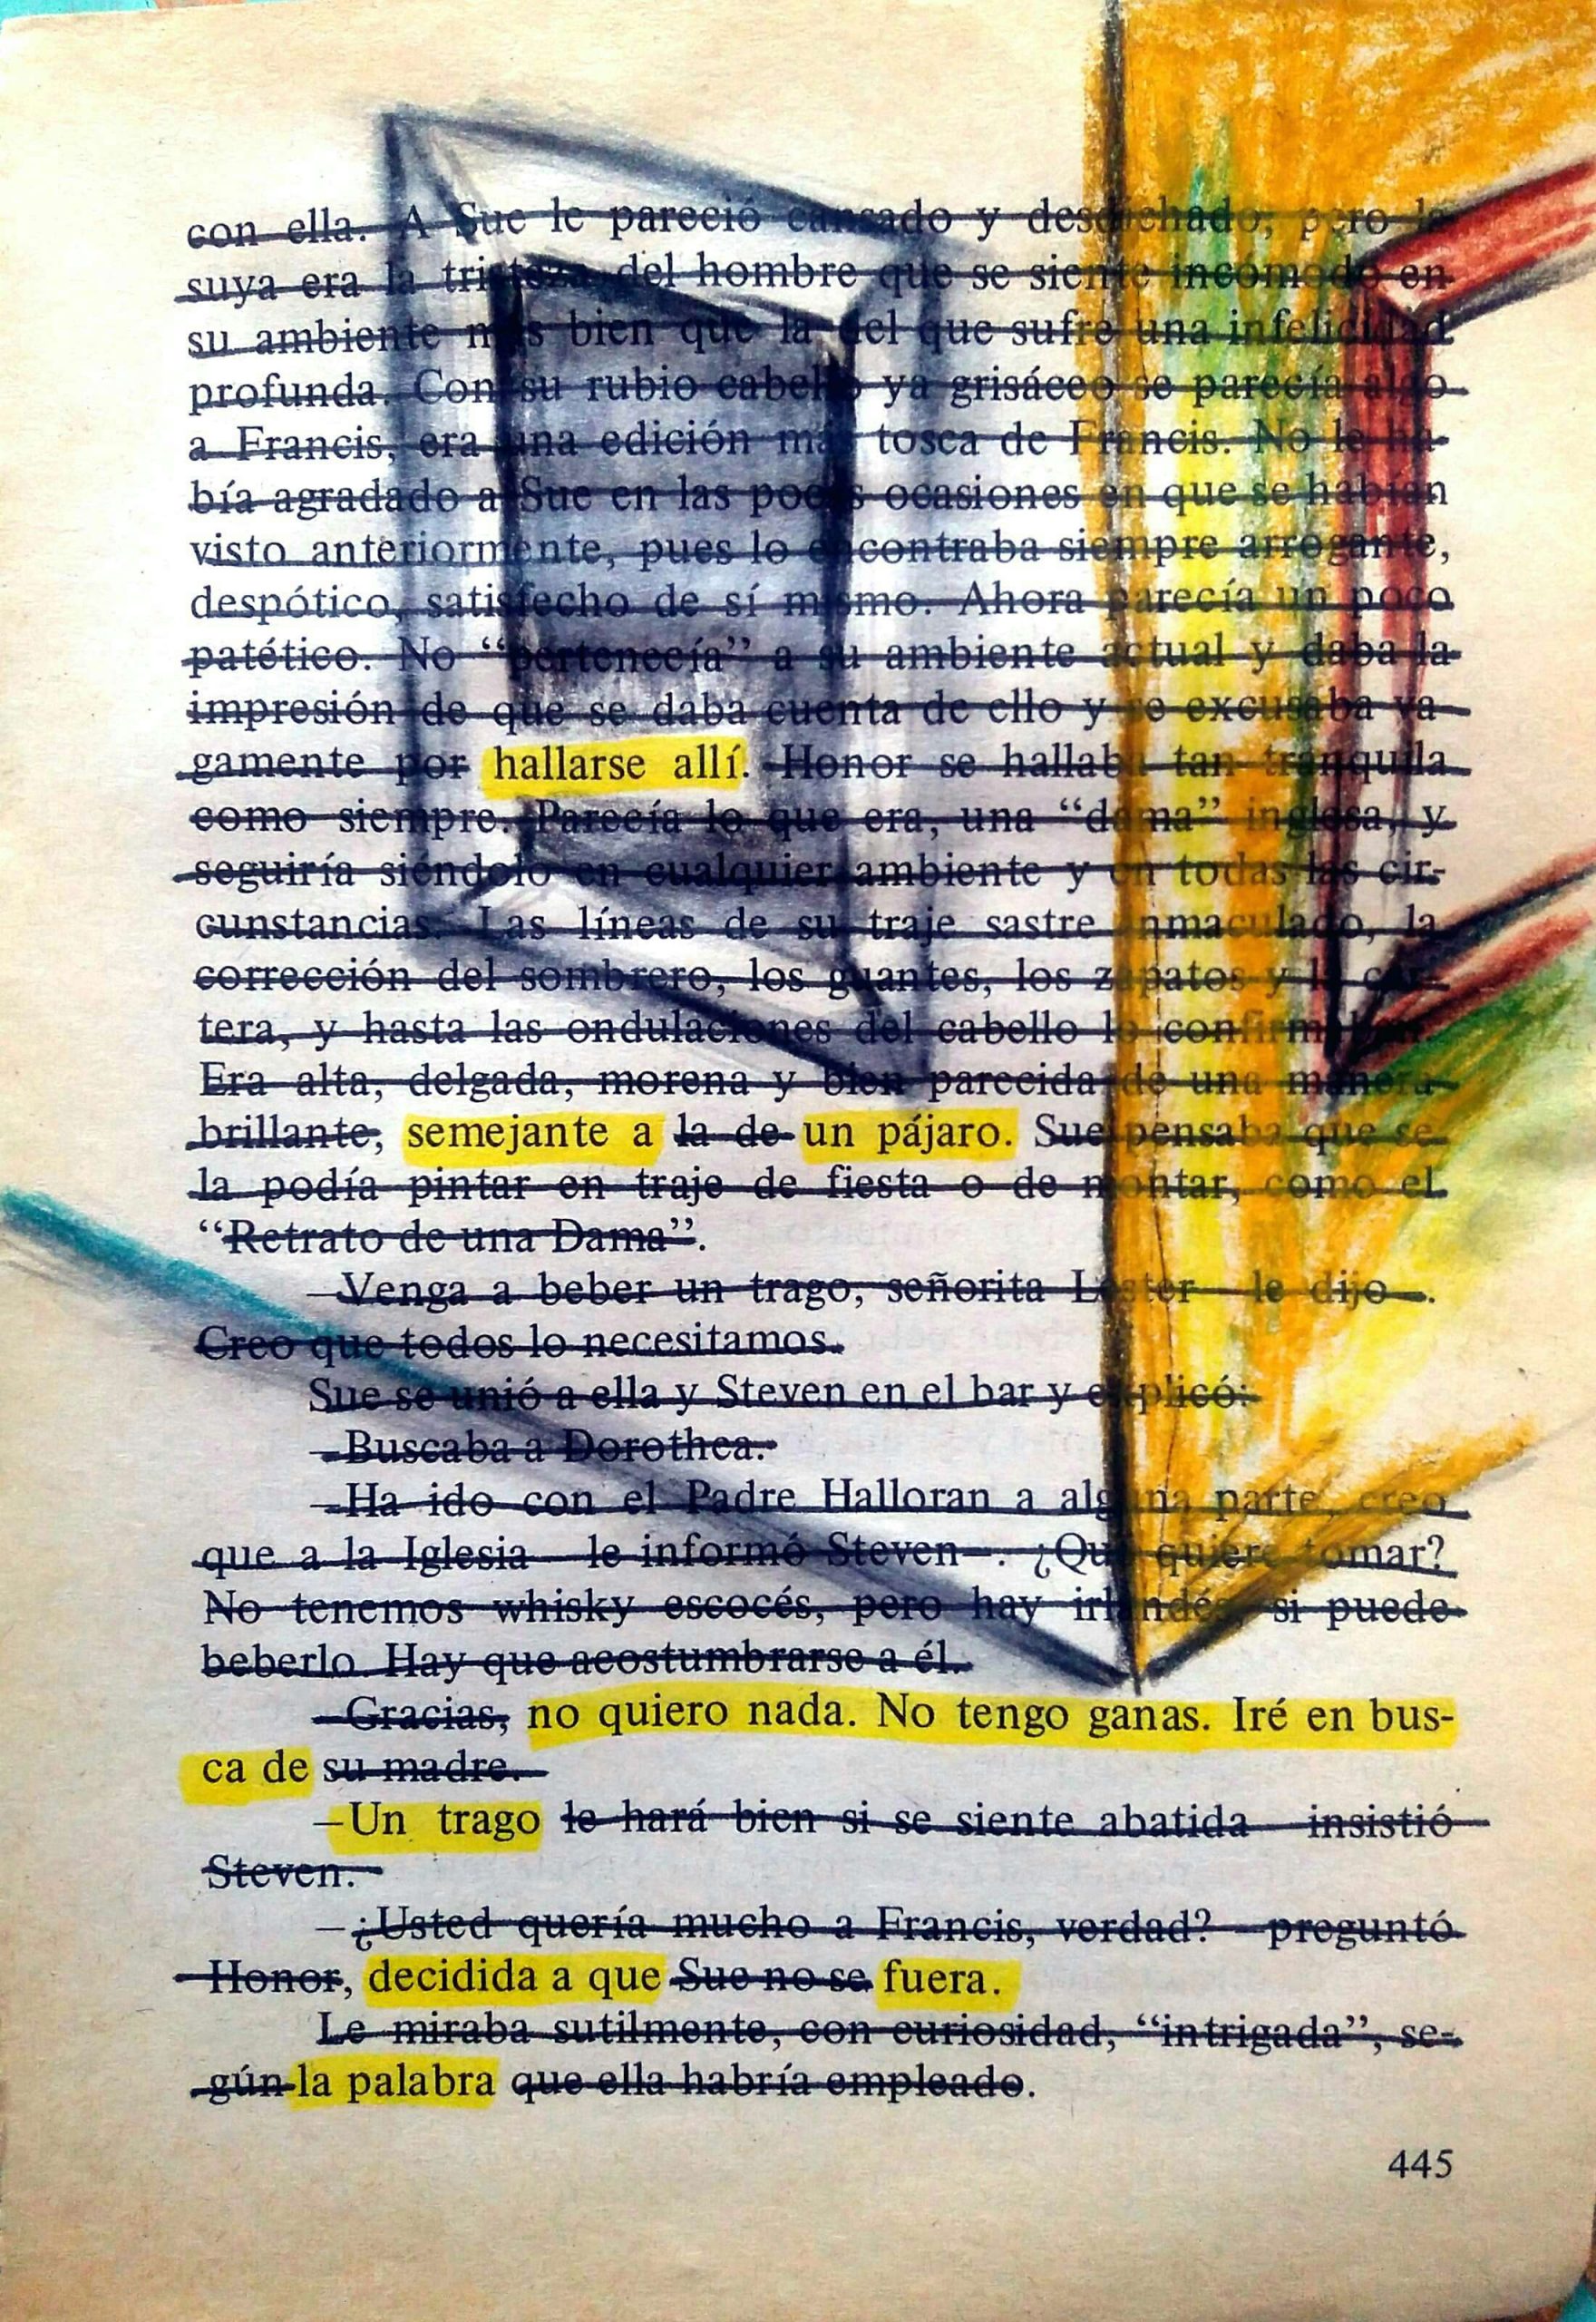 con ella. A Sue le pareció cansado y desdichado; pero la
suya era la tristeza del hombre que se siente incómodo en
su ambiente más bien que la del que sufre una infelicidad
profunda. Con su rubio cabello ya grisáceo se parecía algo
a Francis, era una edición más tosca de Francis. No le ha-
bía agradado a Sue en las pocas ocasiones en que se habían
visto anteriormente, pues lo encontraba siempre arrogante,
despótico, satisfecho de sí mismo. Ahora parecía un poco
patético. No “pertenecía” a su ambiente actual y daba la
impresión de que se daba cuenta de ello y se excusaba va-
gamente por hallarse allí. Honor se hallaba tan tranquila
como siempre. Parecía lo que era, una “dama” inglesa, y
seguiría siéndolo en cualquier ambiente y en todas las cir-
cunstancias. Las líneas de su traje sastre inmaculado, la
corrección del sombrero, los guantes, los zapatos y la car-
tera, y hasta las ondulaciones del cabello lo confirmaban.
Era alta, delgada, morena y bien parecida de una manera
brillante, semejante a la de un pájaro. Sue pensaba que se
la podía pintar en traje de fiesta o de montar, como el
“Retrato de una Dama”.
—Venga a beber un trago, señorita Lester —le dijo—.
Creo que todos lo necesitamos.
Sue se unió a ella y Steven en el bar y explicó:
—Buscaba a Dorothea.
—Ha ido con el Padre Halloran a alguna parte, creo
que a la Iglesia —le informó Steven—. ¿Qué quiere tomar?
No tenemos whisky escocés, pero hay irlandés, si puede
beberlo. Hay que acostumbrarse a él.
—Gracias, no quiero nada. No tengo ganas. Iré en bus-
ca de su madre.
—Un trago le hará bien si se siente abatida —insistió
Steven.
—¿Usted quería mucho a Francis, verdad? —preguntó
Honor, decidida a que Sue no se fuera.
Le miraba sutilmente, con curiosidad, “intrigada”, se-
gún la palabra que ella habría empleado.
445